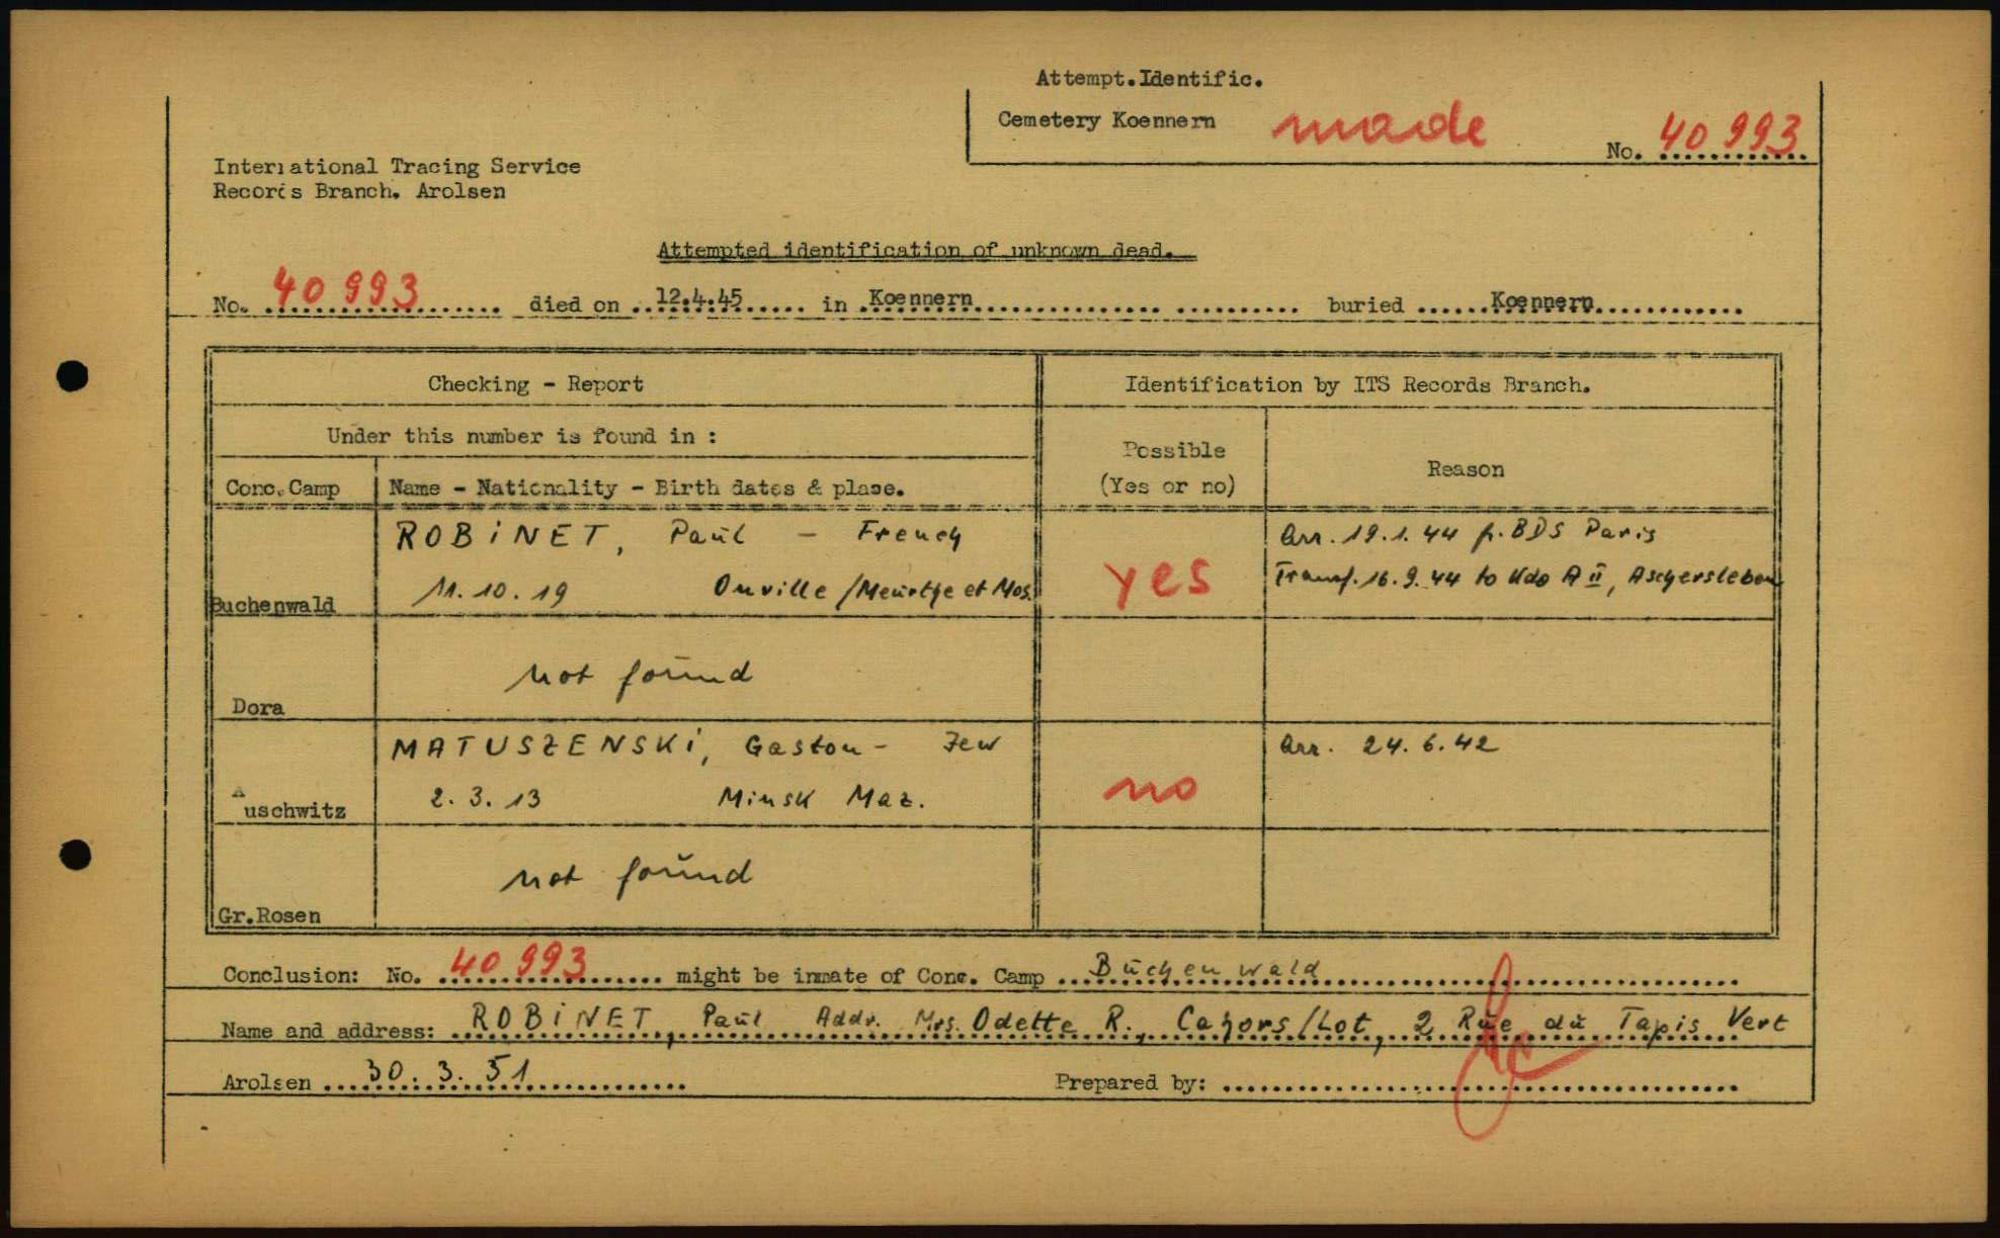 Attempt.Identific.
Cemetery Koennern made No. 40 993
International Tracing Service
Records Branch. Arolsen
Attempted identification of unknown dead.
No. 40 993 died on 12.4.45 in Koennern buried Koennern
Checking - Report Identification by ITS Records Branch.
Under this number is found in :
Possible
(Yes or no)
Reason
Conc.Camp Name - Nationality - Birth dates & place.
ROBINET, Paul - French
11.10.19 Onville /Meurthe et Mos.
Buchenwald
yes
Arr. 19.1.44 fr. BDS Paris
Transf. 16.9.44 to Kdo A II, Aschersleben
not found
Dora
MATUSZENSKI, Gaston - Jew
2.3.13 Minsk Maz.
Auschwitz
no
Arr. 24.6.42
not found
Gr.Rosen
Conclusion: No. 40 993 might be inmate of Conc. Camp Buchenwald
Name and address: ROBINET, Paul Addr. Mrs. Odette R., Cahors/Lot, 2 Rue du Tapis Vert
Arolsen 30.3.51 Prepared by: